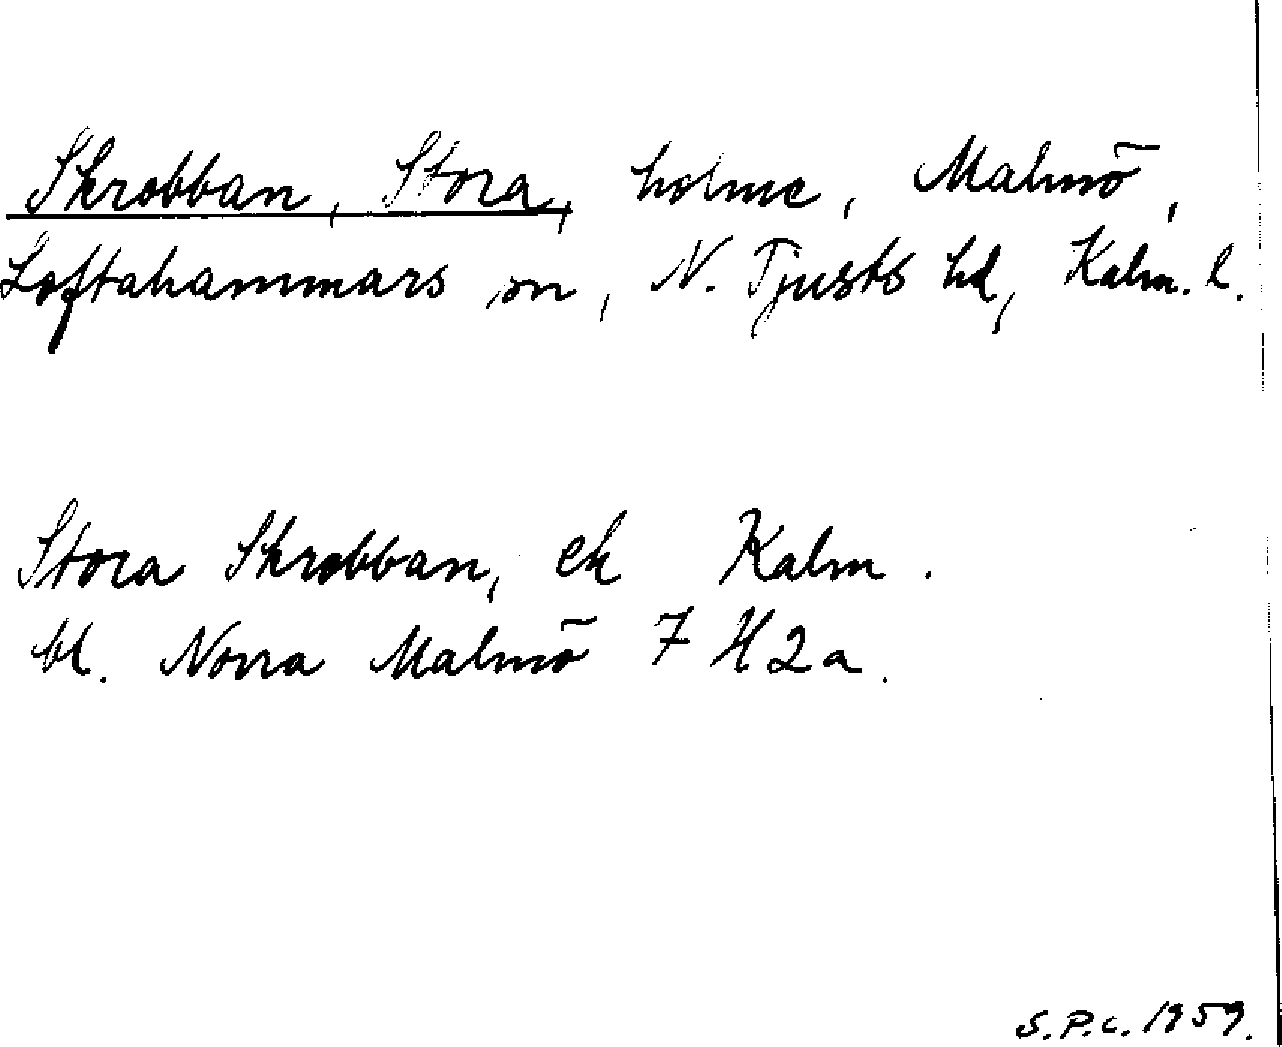 Skrobban, Stora, holme, Malmö,
Loftahammars sn, N. Tjusts hd, Kalm. l.
Stora Skrobban, ek Kalm.
bl. Norra Malmö 7 H 2a.
S.P.C. 1959.